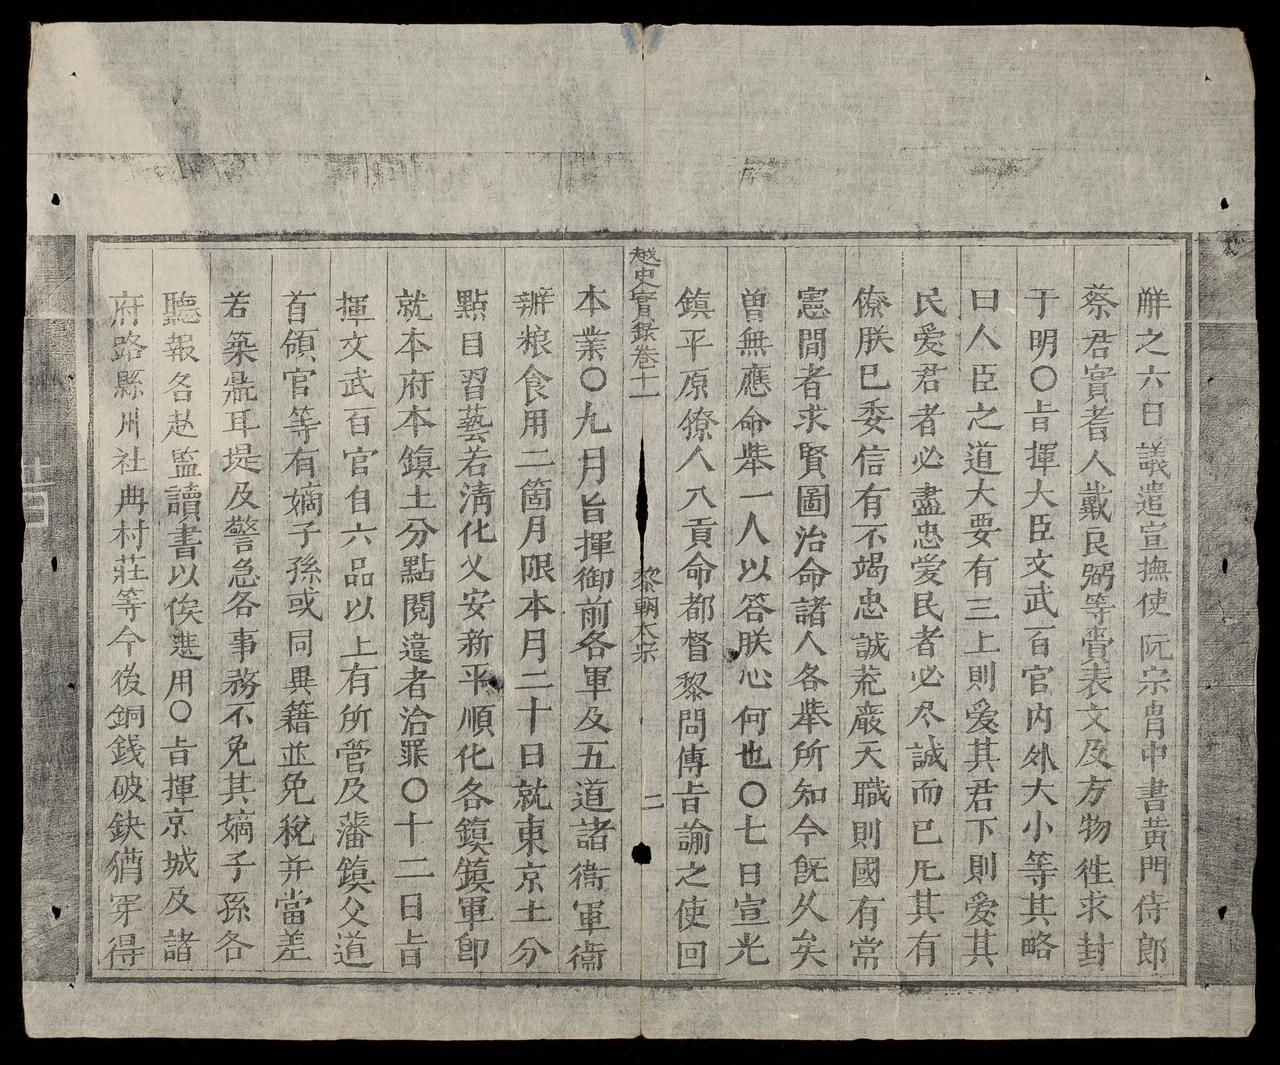 辭之六日議遣宣撫使阮宗胄中書黄門侍郎
蔡君實耆人戴民弼等賫表文及方物徃求封
于明〇旨揮大臣文武百官内外大小等其略
曰人臣之道大要有三上則爱其君下則爱其
民爱君者必盡忠爱民者必尽誠而已凡其有
僚朕已委信有不竭忠誠荒厳天職則國有常
憲間者求賢圖治命諸人各举所知今既久矣
曽無應命举一人以答朕心何也〇七日宣光
鎮平原僚人入貢命都督黎問傳旨諭之使回
越史實錄卷十一 黎朝太宗 二
本業〇九月旨揮御前各軍及五道諸衛軍衛
辦粮食用二箇月限本月二十日就東京土分
點目習藝若清化乂安新平順化各鎮鎮軍即
就本府本鎮土分點閲違者治罪〇十二日旨
揮文武百官自六品以上有所管及藩鎮父道
首領官等有嫡子孫或同異籍並免税并當差
若築鼎耳堤及警急各事務不免其嫡子孫各
聽報各赴監讀書以俟進用〇旨揮京城及諸
府路縣州社冊村莊等今後銅銭破缺猶穿得